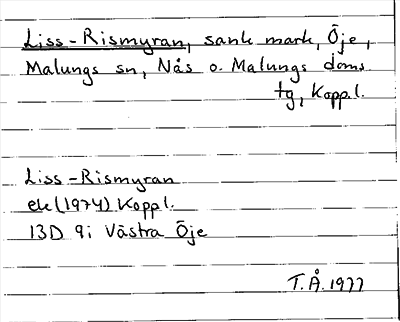 Liss-Rismyran, sank mark, Öje,
Malungs sn, Nås o. Malungs doms
tg, Kopp.l.
Liss-Rismyran
ek (1974) Koppl.
13D 9i Västra Öje
T.Å. 1977